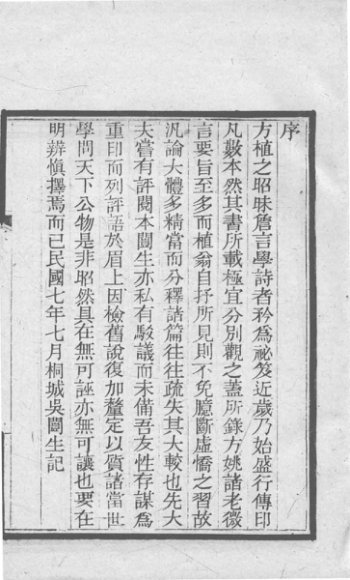 序
方植之昭昧詹言學詩者矜為祕笈近歲乃始盛行傳印
凡數本然其書所載極宜分別觀之蓋所錄方姚諸老微
言要旨至多而植翁自抒所見則不免臆斷虛憍之習故
汎論大體多精當而分釋諸篇往往疏失其大較也先大
夫嘗有評閱本闓生亦私有駁議而未備吾友性存謀為
重印而列評語於眉上因檢舊說復加釐定以質諸當世
學問天下公物是非昭然具在無可誣亦無可讓也要在
明辨愼擇焉而已民國七年七月桐城吳闓生記